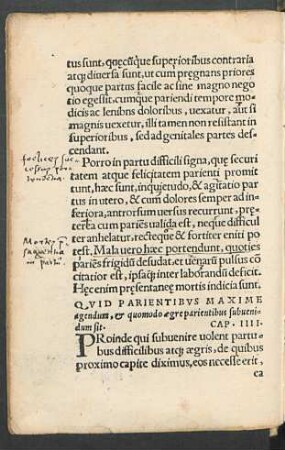 tus sunt, quęcũque superioribus contraria
atq; diuersa sunt, ut cum pręgnans priores
quoque partus facile ac sine magno nego
tio egessit, cumque pariendi tempore mo
dicis ac lenibus doloribus, uexatur, aut si
magnis uexetur, illi tamen non resistant in
superioribus, sed ad genitales partes des
cendant.
Porro in partu difficili signa, que securi
tatem atque felicitatem parienti promit
tunt, hæc sunt, inquietudo, & agitatio par
tus in utero, & cum dolores semper ad in
feriora, antrorsum uersus recurrunt, prę
terea cum pariẽs ualida est, neque difficul
ter anhelatur, rectęque & fortiter eniti po
rest, Mala uero hæc portendunt, quoties
pariẽs frigidũ desudat, et uenarũ pulsus cõ
citatior est, ipsaq; inter laborandũ deficit.
Hęc enim pręsentaneę mortis indicia sunt.
QVID PARIENTIBVS MAXIME
agendum, & quomodo ægre parientibus subueni-
dum sit.
CAP. IIII.
PRoinde qui subuenire uolent partu
bus difficilibus atq; ægris, de quibus
proximo capite diximus, eos necesse erit,
ca